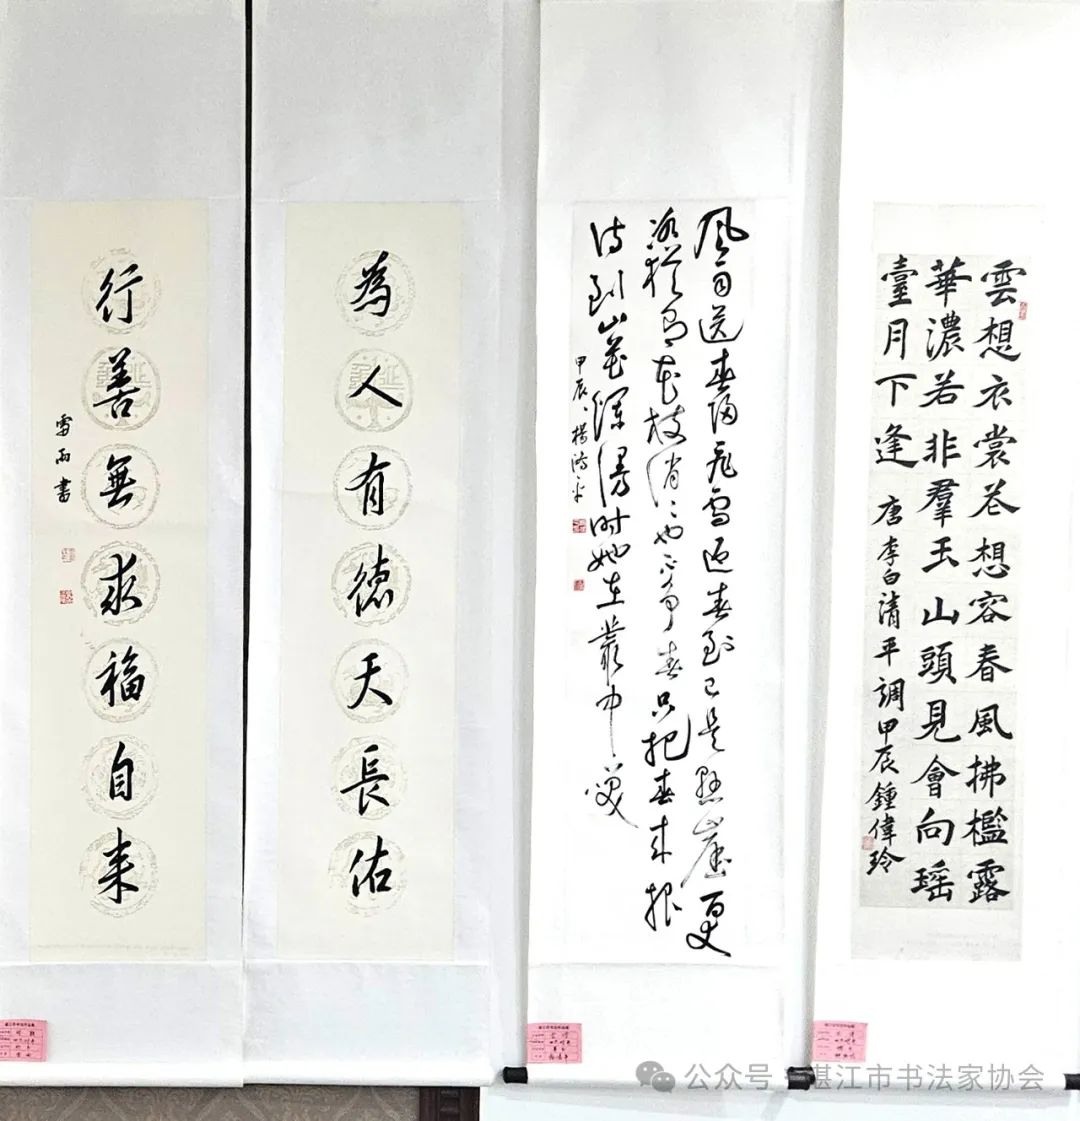 雲想衣裳花想容春風拂檻露
華濃若非羣玉山頭見會向瑶
臺月下逢 唐李白清平調甲辰鍾偉玲
風雨送春歸飛雪迎春到已是懸崖百丈
冰猶有花枝俏俏也不爭春只把春來報
待到山花爛漫时她在叢中笑
甲辰 楊
為人有德天長佑
行善無求福自来
雨書
公众号 · 湛江市书法家协会